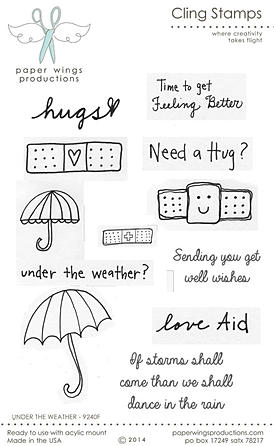 Cling Stamps
where creativity
takes flight
paper wings
productions
hugs
Time to get
Feeling Better
Need a Hug?
Sending you get
well wishes
under the weather?
love Aid
If storms shall
come than we shall
dance in the rain
UNDER THE WEATHER - 9240F
Ready to use with acylic mount
Made in the USA
© 2014
paperwingsproductions.com
po box 17249 satx 78217